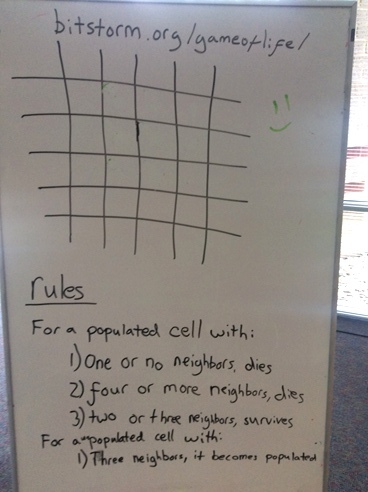 bitstorm.org/gameoflife/
rules
For a populated cell with:
1) One or no neighbors, dies
2) four or more neighbors, dies
3) two or three neighbors, survives
For a populated cell with:
1) Three neighbors, it becomes populated